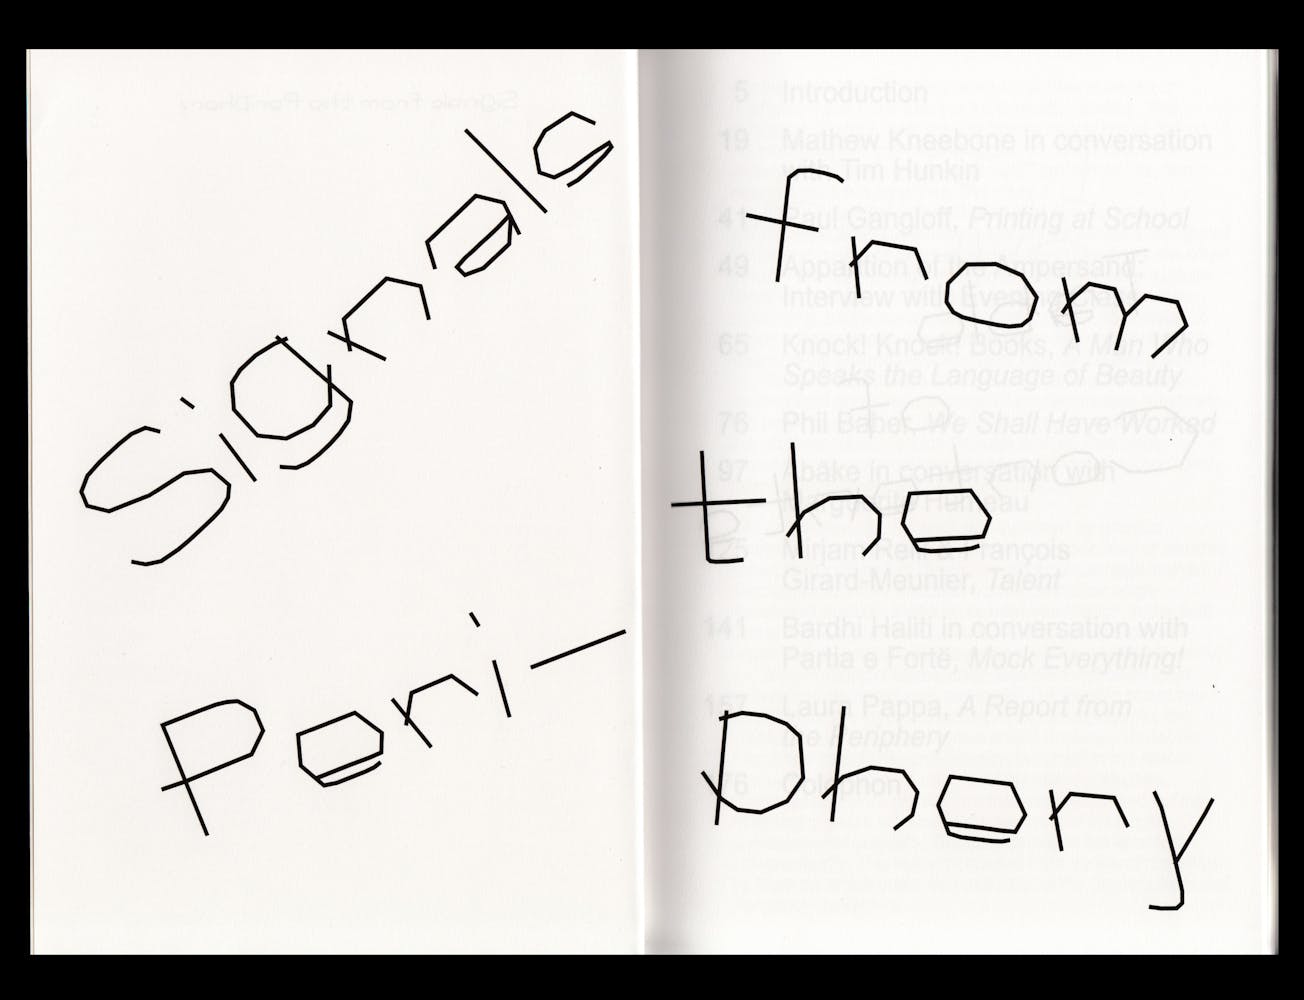 Signals
Peri-
from
the
phery
5 Introduction
19 Mathew Kneebone in conversation
with Tim Hunkin
41 Paul Gangloff, Printing at School
49 Apparition of the Ampersand:
Interview with Evening Class
65 Knock! Knock! Books, A Man Who
Speaks the Language of Beauty
76 Phil Baber, We Shall Have Worked
97 Abäke in conversation with
Marguerite Humeau
125 Mirjam Reili & François
Girard-Meunier, Talent
141 Bardhi Haliti in conversation with
Partia e Fortë, Mock Everything!
167 Laura Pappa, A Report from
the Periphery
176 Colophon